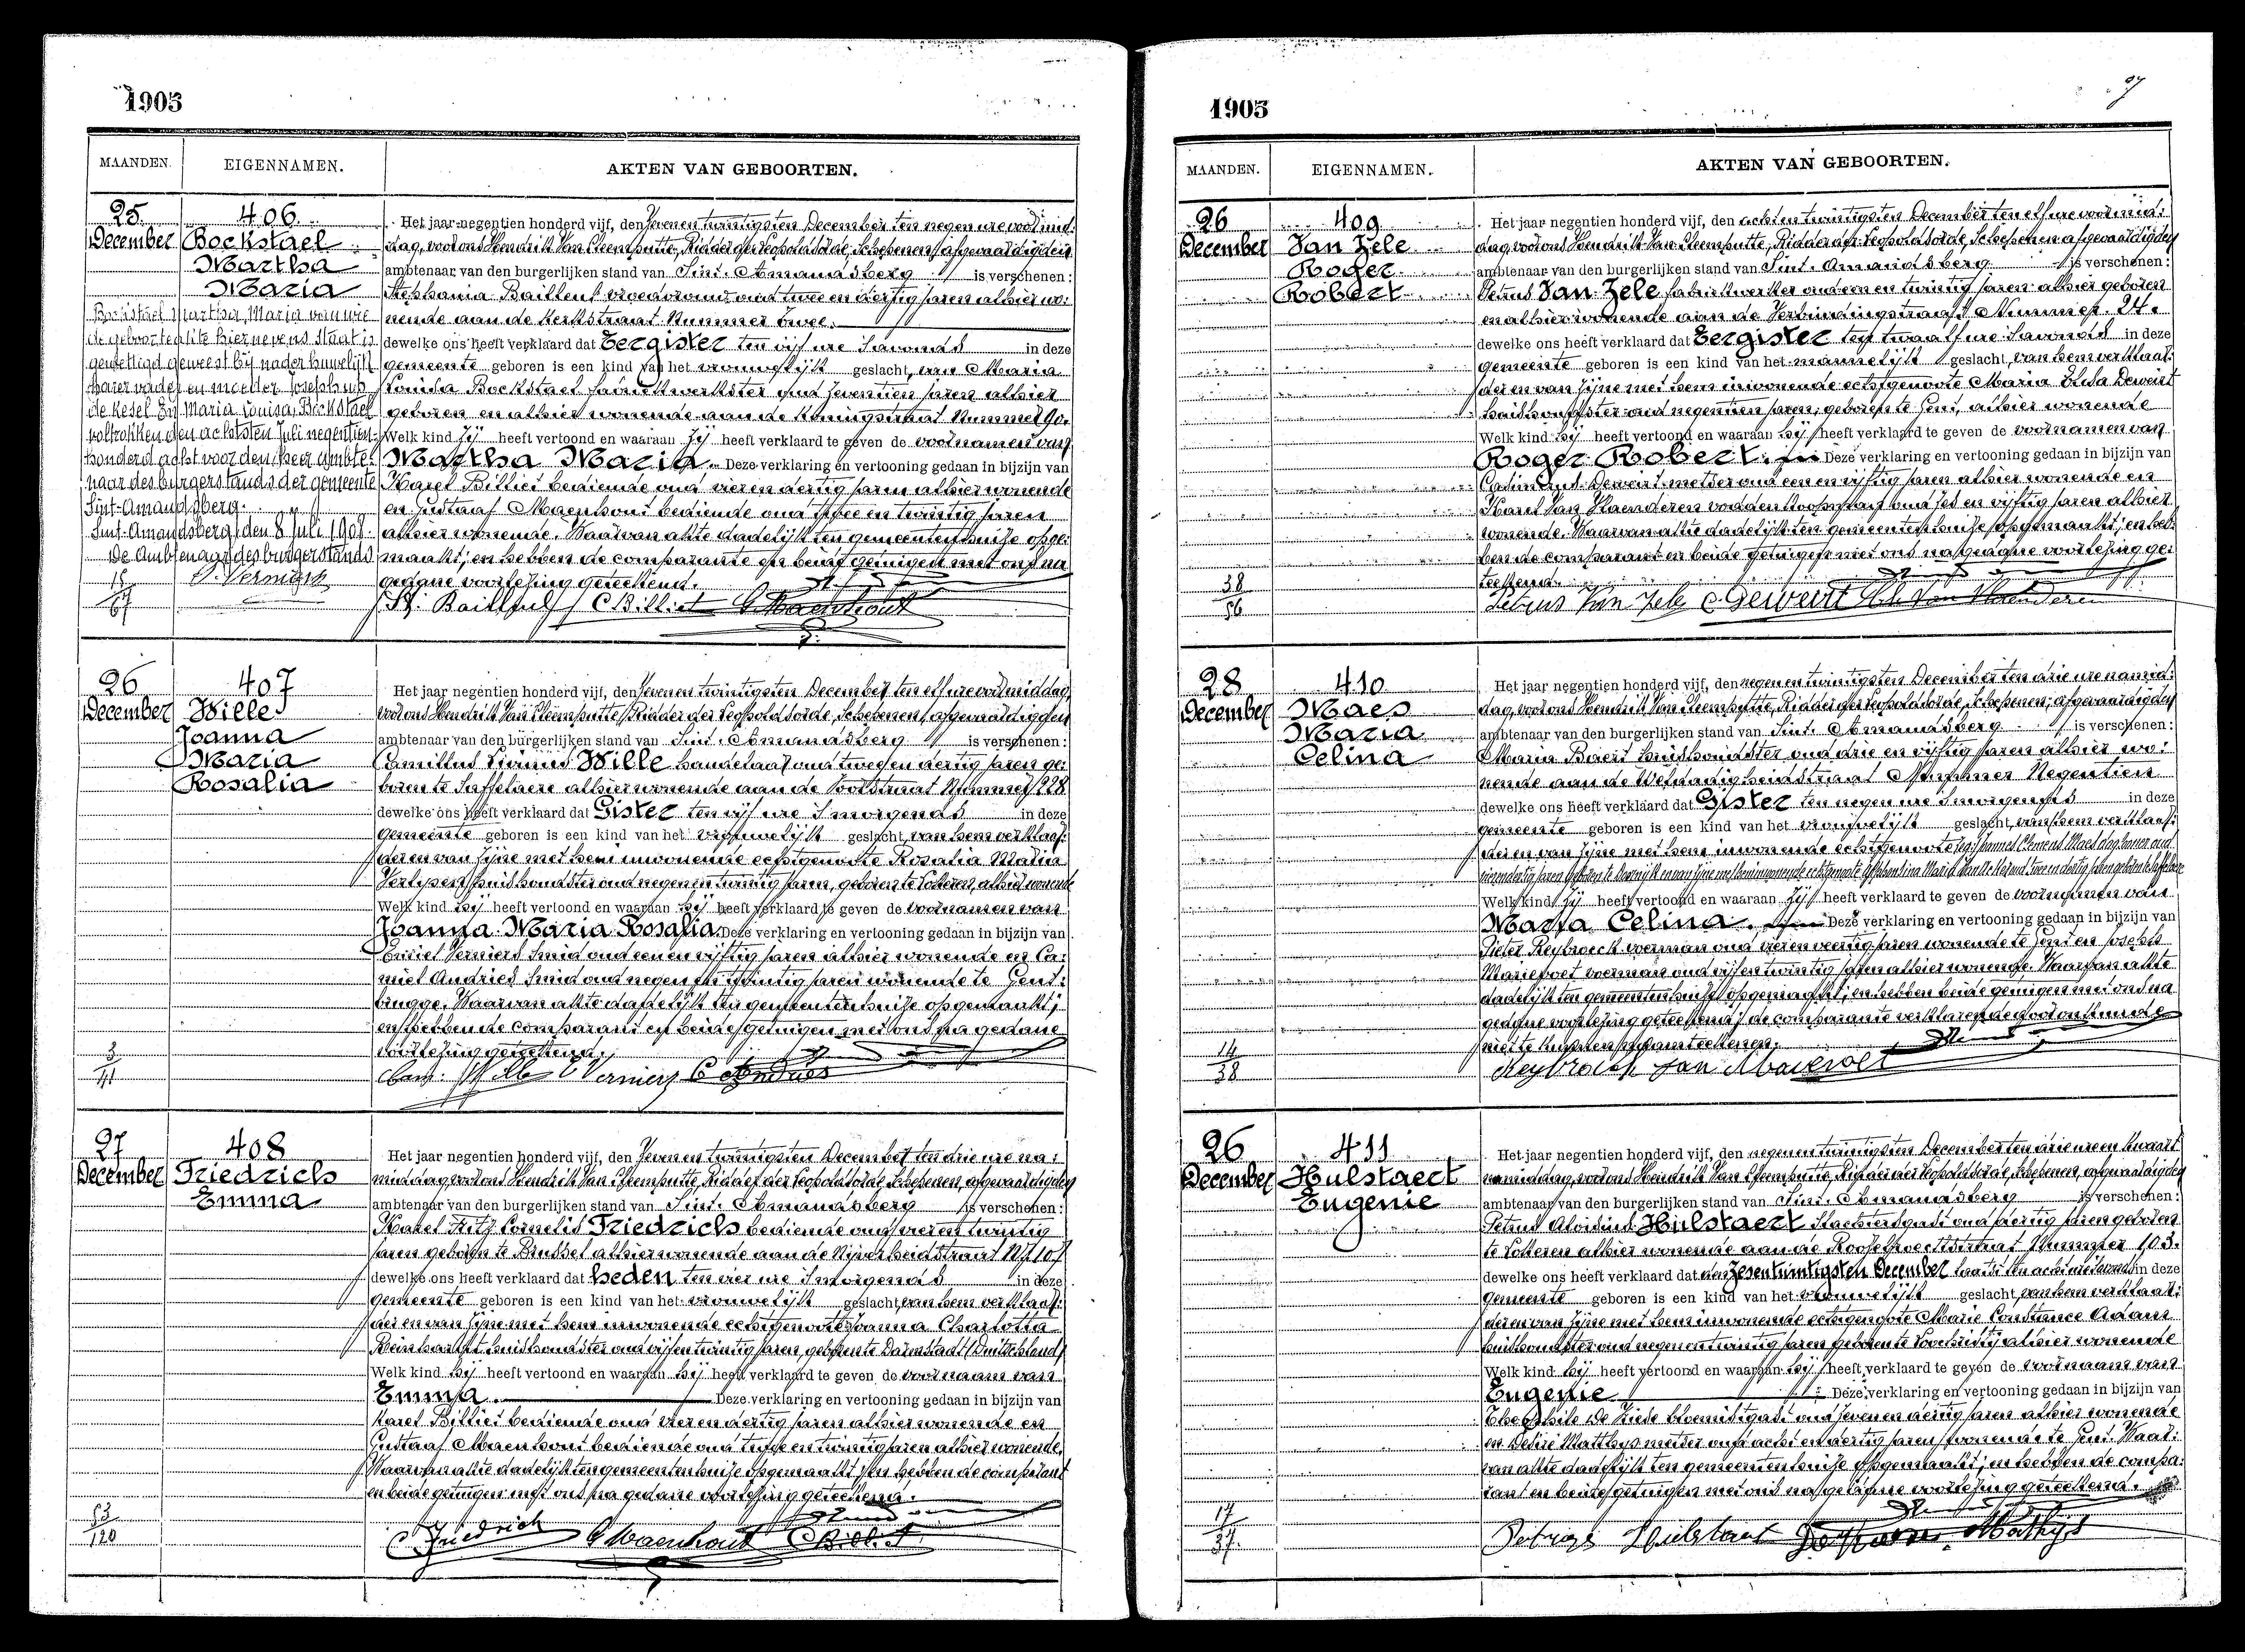 1905
MAANDEN.
EIGENNAMEN.
AKTEN VAN GEBOORTEN.
25
December
406
Bockstael
Martha
Maria
Bockstael Martha Maria van wie
de geboorteakte hiernevens staat is
gewettigd geweest bij nader huwelijk
harer vader en moeder Josephus
de Kesel En Maria Louisa Bockstael
voltrokken den achtsten Juli negentien-
honderd acht voor den heer Ambte-
naar des burgerstands der gemeente
Sint-Amandsberg.
Sint-Amandsberg, den 8 Juli 1908.
De Ambtenaar des burgerstands
15
67
Het jaar negentien honderd vijf, den Zeven en twintigsten December ten negen ure voormid-
dag, voor ons Hendrik Van Cleemputte, Ridder der Leopoldsorde, Schepenen, afgevaardigden
ambtenaar van den burgerlijken stand van Sint-Amandsberg is verschenen:
Stephania Bailleul vroedvrouw oud twee en dertig jaren alhier wo-
nende aan de Kerkstraat Nummer Twee.
dewelke ons heeft verklaard dat Eergister ten vijf ure 's avonds in deze
gemeente geboren is een kind van het vrouwelijk geslacht, van Maria
Louisa Bockstael fabriekwerkster oud zeventien jaren alhier
geboren en alhier wonende aan de Koningstraat Nummer 90.
Welk kind zij heeft vertoond en waaraan zij heeft verklaard te geven de voornamen van
Martha Maria. Deze verklaring en vertooning gedaan in bijzijn van
Karel Billiet bediende oud vier en dertig jaren alhier wonende
en Gustaaf Maenhout bediende oud twee en twintig jaren
alhier wonende. Waarvan akte dadelijk ten gemeentenhuize opge-
maakt; en hebben de comparante en beide getuigen met ons na
gedane voorlezing geteekend.
St. Bailleul C Billiet G Maenhout
26
December
407
Wille
Joanna
Maria
Rosalia
3
41
Het jaar negentien honderd vijf, den Zeven en twintigsten December ten elf ure voormiddag,
voor ons Hendrik Van Cleemputte, Ridder der Leopoldsorde, Schepenen, afgevaardigden
ambtenaar van den burgerlijken stand van Sint-Amandsberg is verschenen:
Camillus Wille handelaar oud twee en dertig jaren ge-
boren te Saffelaere alhier wonende aan de Voorstraat Nummer 228
dewelke ons heeft verklaard dat Gister ten vijf ure 's morgends in deze
gemeente geboren is een kind van het vrouwelijk geslacht, van hem verklaar-
der en van zijne met hem inwonende echtgenoote Rosalia Maria
huishoudster oud negen en twintig jaren, geboren te Lokeren, alhier wonende
Welk kind hij heeft vertoond en waaraan hij heeft verklaard te geven de voornamen van
Joanna Maria Rosalia. Deze verklaring en vertooning gedaan in bijzijn van
Emiel Verniers smid oud een en vijftig jaren alhier wonende en Ca-
miel Andries smid oud negen en twintig jaren wonende te Gent-
brugge. Waarvan akte dadelijk ten gemeentenhuize opgemaakt;
en hebben de comparant en beide getuigen met ons na gedane
voorlezing geteekend.
Cam. Wille E Verniers C Andries
27
December
408
Friedrich
Emma
53
120
Het jaar negentien honderd vijf, den Zeven en twintigsten December ten drie ure na-
middag, voor ons Hendrik Van Cleemputte, Ridder der Leopoldsorde, Schepenen, afgevaardigden
ambtenaar van den burgerlijken stand van Sint-Amandsberg is verschenen:
Karel Fritz Cornelis Friedrich bediende oud vier en twintig
jaren geboren te Brussel alhier wonende aan de Nijverheidstraat N. 107
dewelke ons heeft verklaard dat heden ten vier ure 's morgends in deze
gemeente geboren is een kind van het vrouwelijk geslacht, van hem verklaar-
der en van zijne met hem inwonende echtgenoote Joanna Charlotta
Reinhardt huishoudster oud vijf en twintig jaren, geboren te Darmstadt (Duitschland)
Welk kind hij heeft vertoond en waaraan hij heeft verklaard te geven de voornaam van
Emma. Deze verklaring en vertooning gedaan in bijzijn van
Karel Billiet bediende oud vier en dertig jaren alhier wonende en
Gustaaf Maenhout bediende oud twee en twintig jaren alhier wonende.
Waarvan akte dadelijk ten gemeentenhuize opgemaakt; en hebben de comparant
en beide getuigen met ons na gedane voorlezing geteekend.
C Friedrich G Maenhout C Billiet
1905
97
MAANDEN.
EIGENNAMEN.
AKTEN VAN GEBOORTEN.
26
December
409
Van Zele
Roger
Robert
38
56
Het jaar negentien honderd vijf, den achten twintigsten December ten elf ure voormid-
dag, voor ons Hendrik Van Cleemputte, Ridder der Leopoldsorde, Schepenen, afgevaardigden
ambtenaar van den burgerlijken stand van Sint-Amandsberg is verschenen:
Petrus Van Zele fabriekwerker oud een en twintig jaren alhier geboren
en alhier wonende aan de Verbindingstraat Nummer 24.
dewelke ons heeft verklaard dat Eergister ten twaalf ure 's avonds in deze
gemeente geboren is een kind van het mannelijk geslacht, van hem verklaar-
der en van zijne met hem inwonende echtgenoote Maria Elisa Deweirt
huishoudster oud negentien jaren, geboren te Gent, alhier wonende
Welk kind hij heeft vertoond en waaraan hij heeft verklaard te geven de voornamen van
Roger Robert. Deze verklaring en vertooning gedaan in bijzijn van
Dewert metser oud een en vijftig jaren alhier wonende en
Karel Van Vlaenderen voddenkoopman oud zes en vijftig jaren alhier
wonende. Waarvan akte dadelijk ten gemeentenhuize opgemaakt; en heb-
ben de comparant en beide getuigen met ons na gedane voorlezing ge-
teekend.
Petrus Van Zele Van Vlaenderen
28
December
410
Maes
Maria
Celina
14
38
Het jaar negentien honderd vijf, den negen en twintigsten December ten drie ure namid-
dag, voor ons Hendrik Van Cleemputte, Ridder der Leopoldsorde, Schepenen, afgevaardigden
ambtenaar van den burgerlijken stand van Sint-Amandsberg is verschenen:
Maria Baert huishoudster oud drie en vijftig jaren alhier wo-
nende aan de Weldadigheidstraat Nummer Negentien
dewelke ons heeft verklaard dat Gister ten negen ure 's morgends in deze
gemeente geboren is een kind van het vrouwelijk geslacht, van hem verklaar-
der en van zijne met hem inwonende echtgenoote
Welk kind zij heeft vertoond en waaraan zij heeft verklaard te geven de voornamen van
Maria Celina. Deze verklaring en vertooning gedaan in bijzijn van
Pieter Reybroeck voerman oud vier en veertig jaren wonende te Gent en Joseph
voerman oud vijf en twintig jaren alhier wonende. Waarvan akte
dadelijk ten gemeentenhuize opgemaakt; en hebben beide getuigen met ons na
gedane voorlezing geteekend; de comparante verklarende door onkunde
niet te kunnen naamteekenen.
Reybroeck Jan
26
December
411
Hulstaert
Eugenie
17
37.
Het jaar negentien honderd vijf, den negen en twintigsten December ten drie ure en kwaart
namiddag, voor ons Hendrik Van Cleemputte, Ridder der Leopoldsorde, Schepenen, afgevaardigden
ambtenaar van den burgerlijken stand van Sint-Amandsberg is verschenen:
Petrus Aloisius Hulstaert slachtersgast oud dertig jaren geboren
te Lokeren alhier wonende aan de Nummer 103.
dewelke ons heeft verklaard dat den Zesentwintigsten December laatst ten acht ure 's avonds in deze
gemeente geboren is een kind van het vrouwelijk geslacht, van hem verklaar-
der en van zijne met hem inwonende echtgenoote Marie Constance Adam
huishoudster oud negen en twintig jaren geboren te Loochristij alhier wonende
Welk kind hij heeft vertoond en waaraan hij heeft verklaard te geven de voornaam van
Eugenie Deze verklaring en vertooning gedaan in bijzijn van
Theophile De Ziede bloemistgast oud zeven en dertig jaren alhier wonende
en Desiré Matthys metser oud acht en dertig jaren wonende te Gent. Waar-
van akte dadelijk ten gemeentenhuize opgemaakt; en hebben de compa-
rant en beide getuigen met ons na gedane voorlezing geteekend.
Petrus Hulstaert Mathys